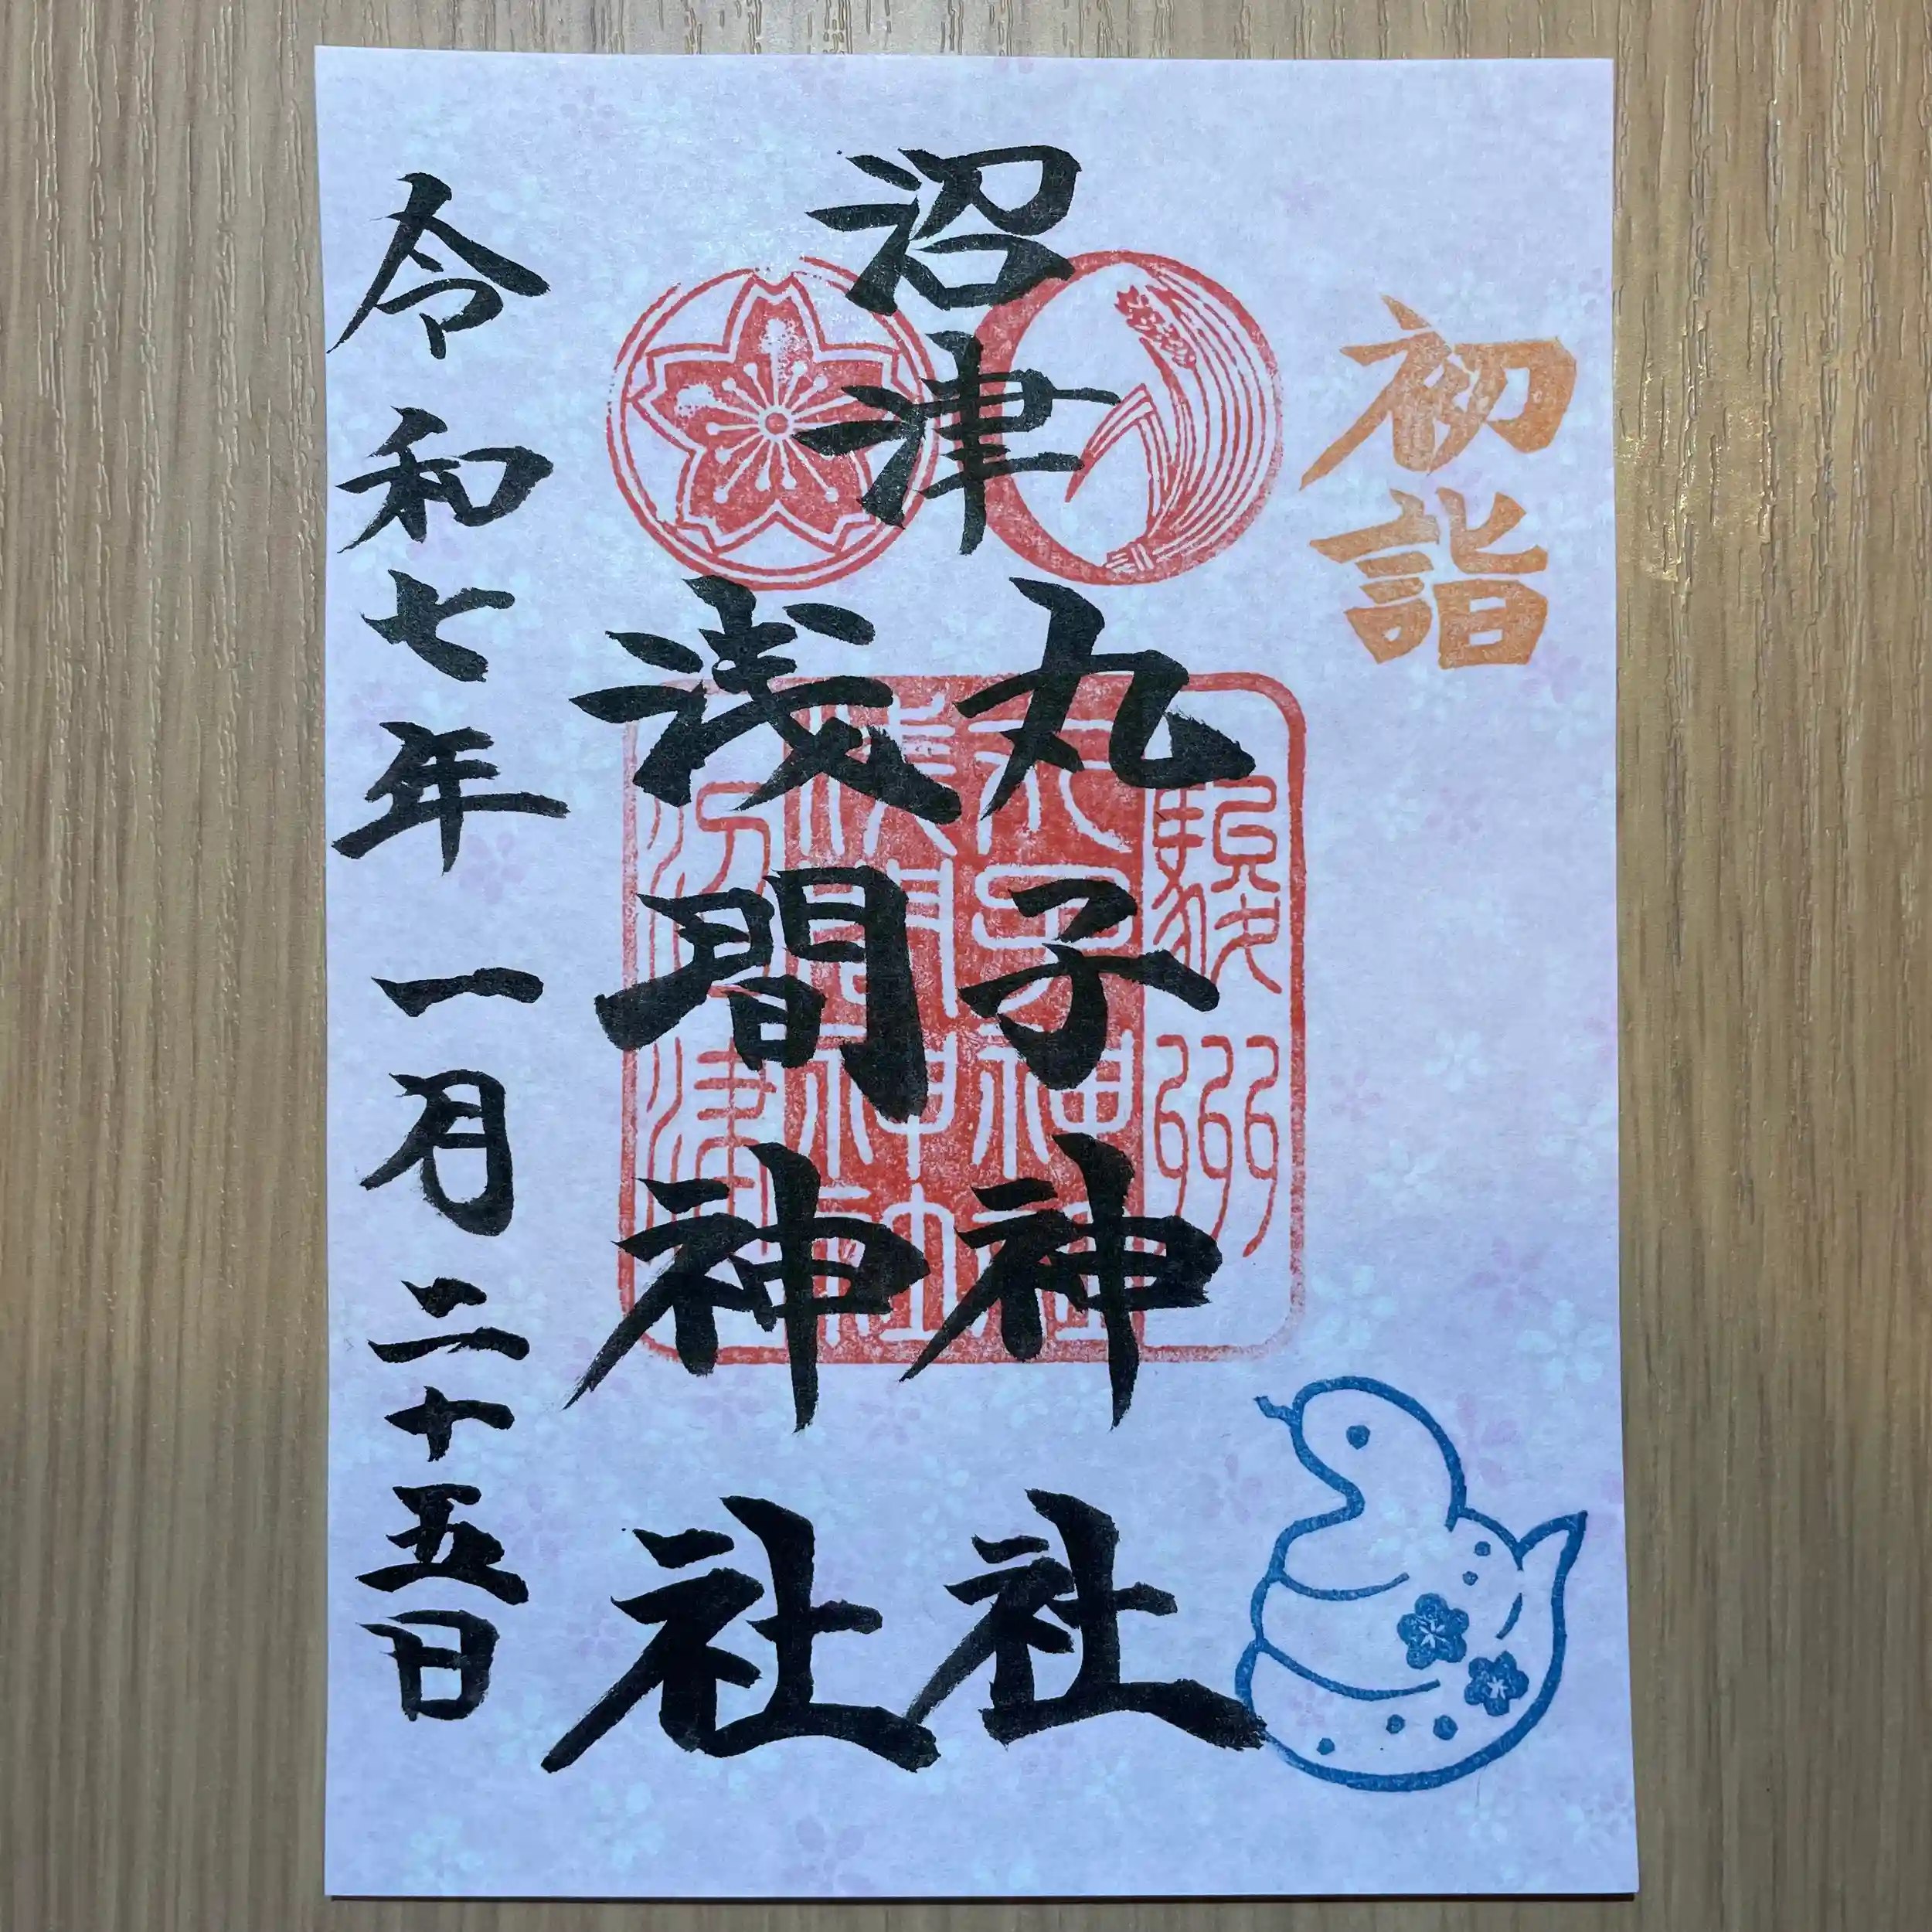 初詣
沼津
丸子神社
浅間神社
令和七年一月二十五日
駿州
丸子神社
浅間神社
沼津